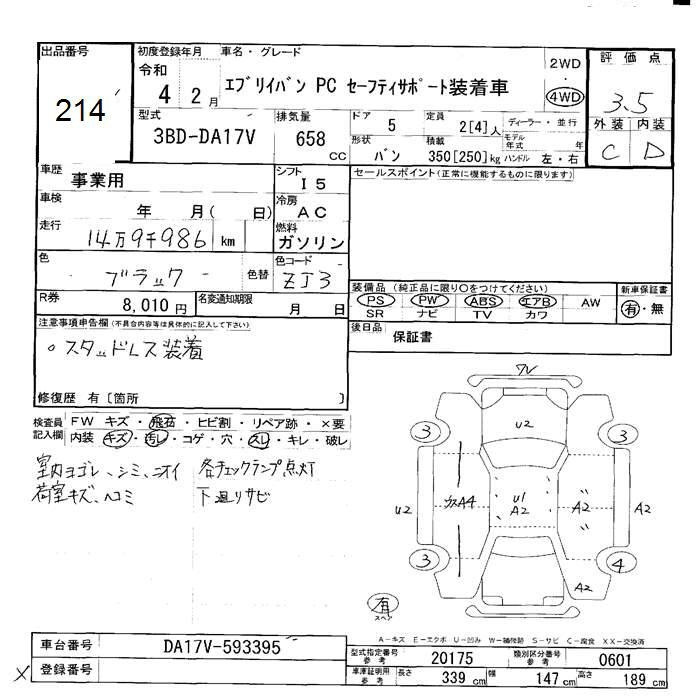 出品番号
214
初度登録年月
令和
4 2月
車名・グレード
エブリイバン PC セーフティサポート装着車
2WD
4WD
評価点
3.5
外装 内装
C D
型式
3BD-DA17V
排気量
658
CC
ドア
5
定員
2[4]人
ディーラー・並行
形状
バン
積載
350[250]kg
モデル年式 年
ハンドル 左・右
車歴
事業用
シフト
I5
車検
年 月( 日)
冷房
AC
走行
14万9千986 km
燃料
ガソリン
色
ブラック
色替
色コード
ZJ3
R券
8,010円
名変通知期限
月 日
セールスポイント(正常に機能するものに限ります)
装備品 (純正品に限り○をつけてください)
PS PW ABS エアB AW
SR ナビ TV カワ
新車保証書
有・無
後日品
保証書
注意事項申告欄(不具合内容等は具体的に記入して下さい)
○スタッドレス装着
修復歴 有〔箇所 〕
検査員記入欄
FW キズ・飛石・ヒビ割・リペア跡・×要
内装 キズ・汚レ・コゲ・穴・スレ・キレ・破レ
室内ヨゴレ、シミ、ニオイ
荷室キズ、ヘコミ
各チェックランプ点灯
下廻りサビ
U2
3
3
U2
A4
U1
A2
A2
A2
3
4
A2
有
スペア
A-キズ E-エクボ U-凹み W-補修跡 S-サビ C-腐食 XX-交換済
車台番号
DA17V-593395
登録番号
X
型式指定番号
参考
20175
類別区分番号
参考
0601
車庫証明用
参考
長さ 339 cm
幅 147 cm
高さ 189 cm